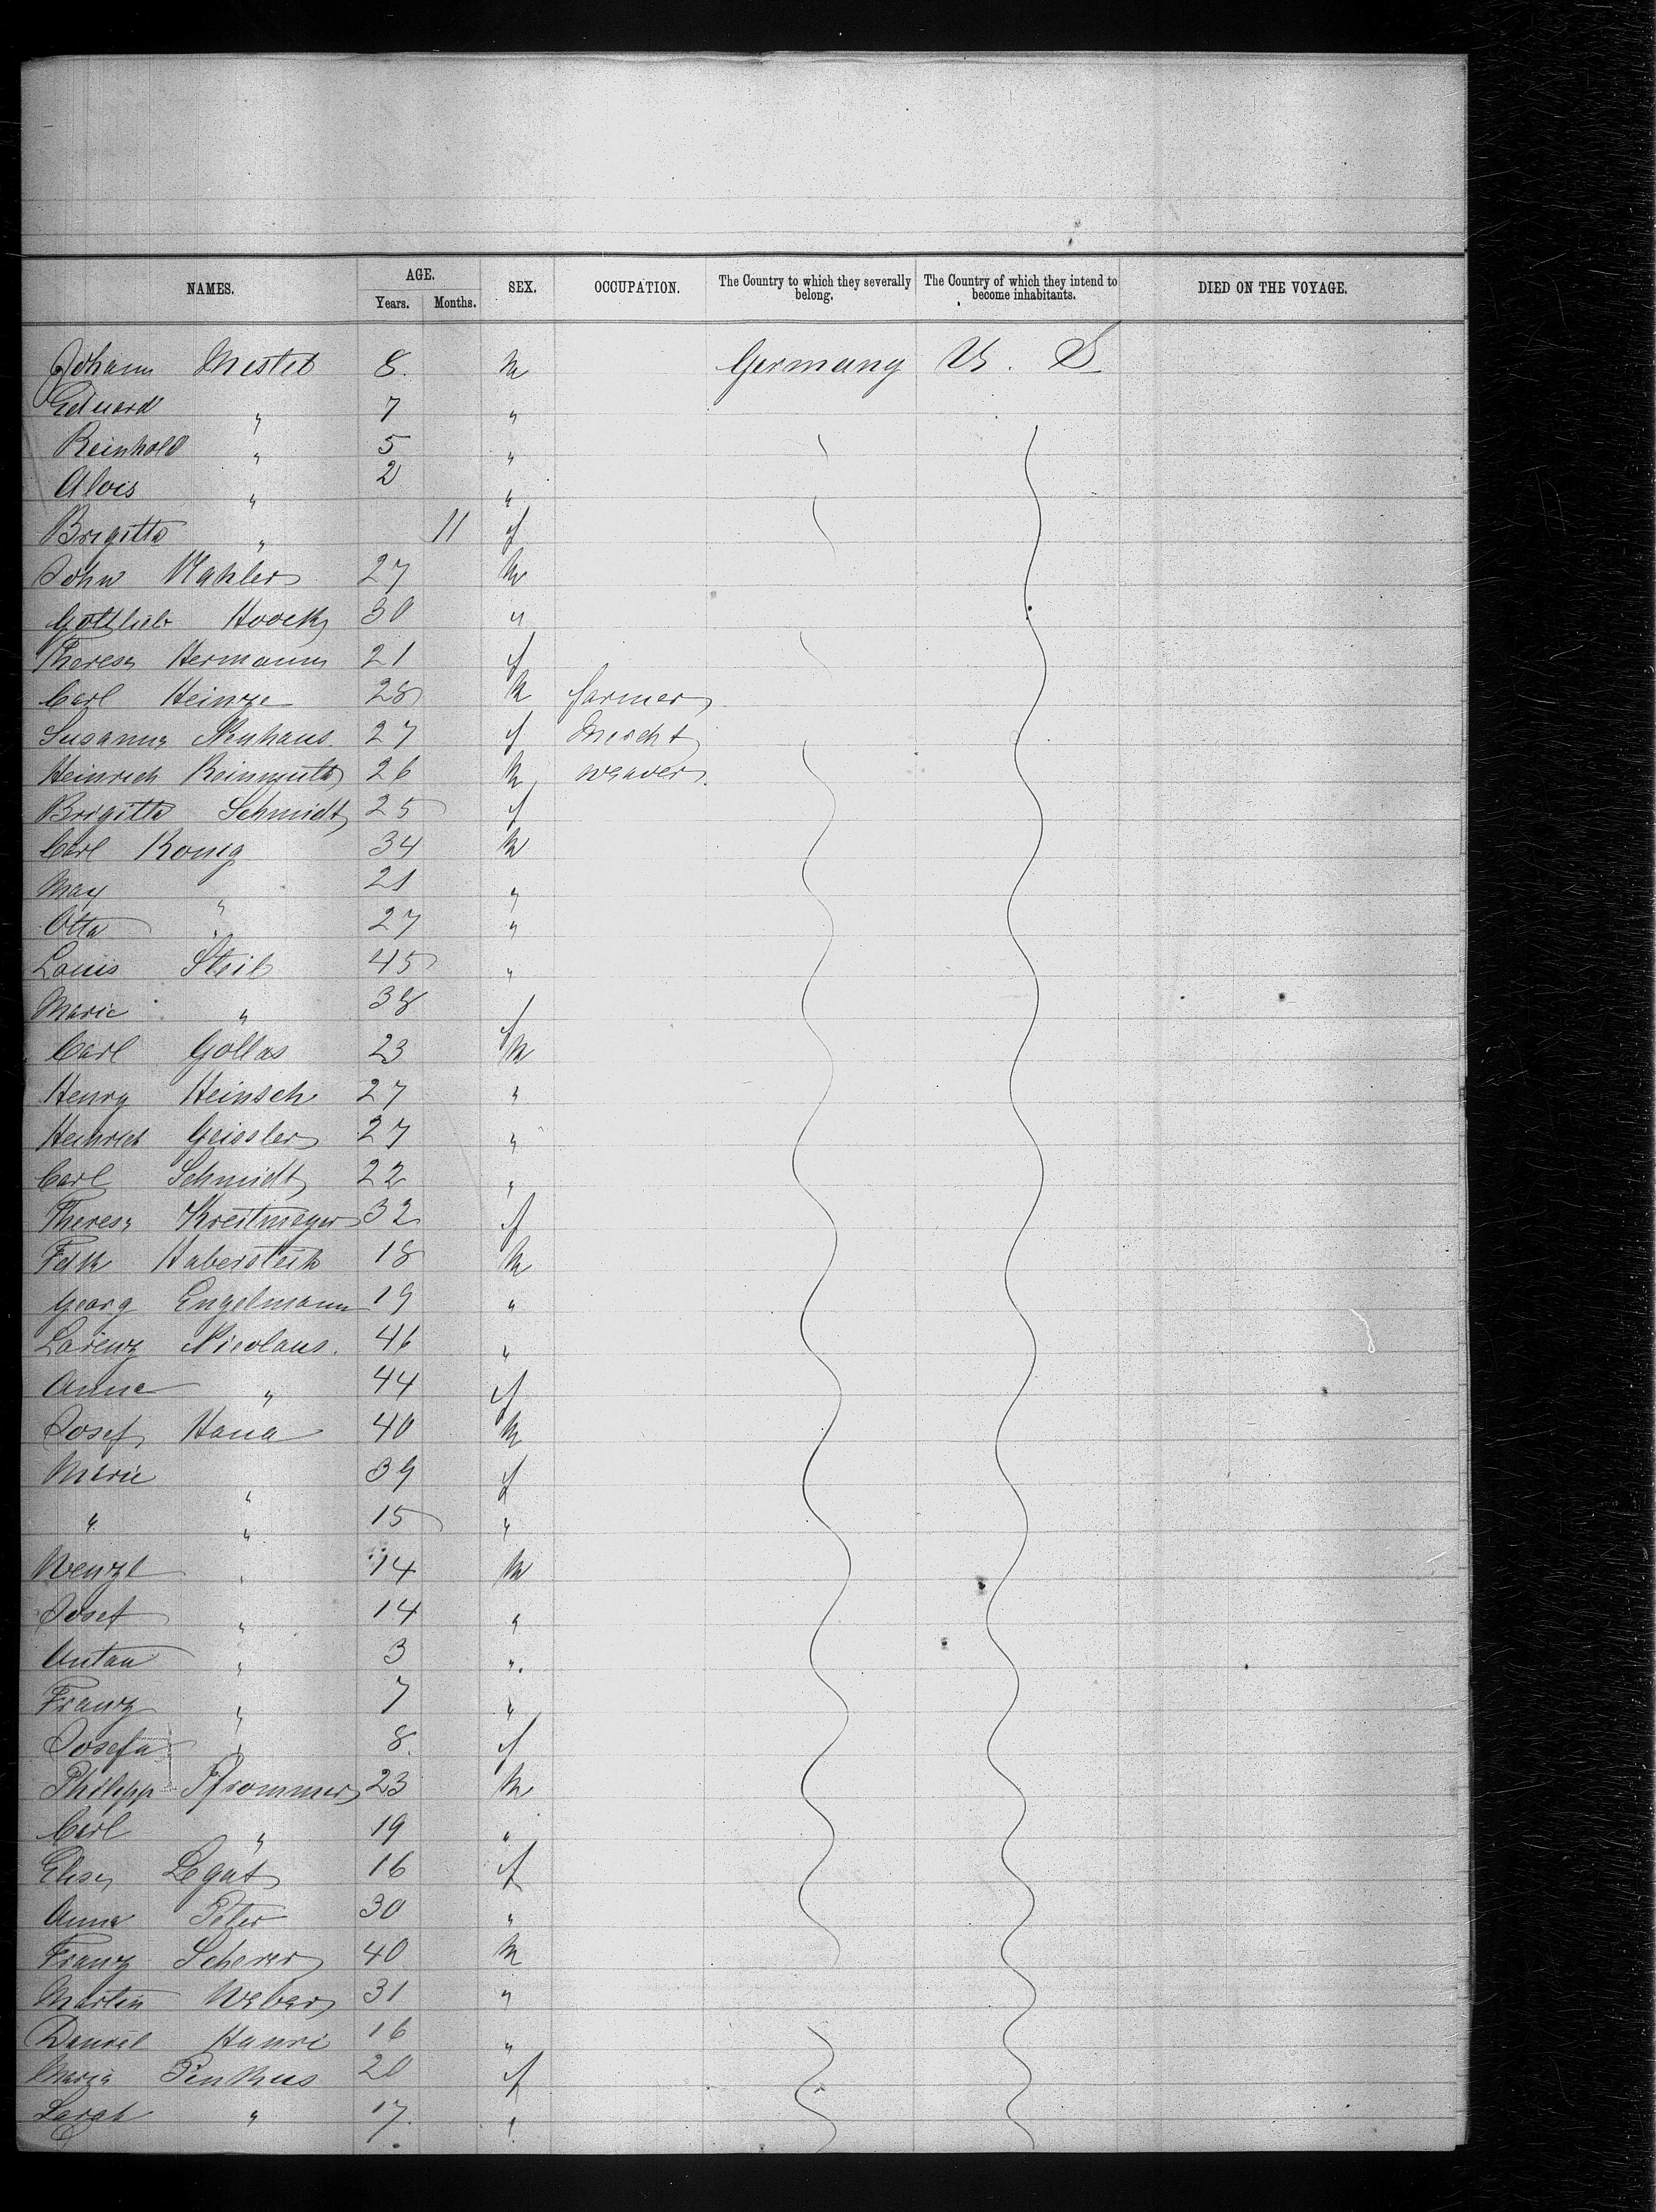 NAMES. AGE. SEX. OCCUPATION. The Country to which they severally belong. The Country of which they intend to become inhabitants. DIED ON THE VOYAGE.
Years. Months.
Johann Mestel 8. m Germany U. S.
Eduard " 7 "
Reinhold " 5 "
Alois " 2 "
Brigitta " 11 f
John Mahler 27 m
Gottlieb Hoock 30 "
Theresa Hermann 21 f
Carl Heinze 28 m farmer
Susanna Neuhaus. 27 f Mercht
Heinrich Reinmuth 26 m weaver.
Brigitta Schmidt 25 f
Carl Konig 34 m
Max " 21 "
Otto " 27 "
Louis Steib 45 "
Marie " 38 f
Carl Gollas 23 m
Henry Heinsch 27 "
Heinrich Geissler 27 "
Carl Schmidt 22 "
Theresa Kreitmeyer 32 f
18 m
Georg Engelmann 19 "
Lorenz Nicolaus. 46 "
Anna " 44 f
Josef Hana 40 m
Marie " 39 f
" " 15 "
Wenzl " 14 m
Josef " 14 "
Anton " 3 ".
Franz " 7 "
Josefa " 8. f
Philipp Pfrommer 23 m
Carl " 19 "
Elise Legat 16 f
Anna Peter 30 "
Franz Scherer 40 m
Martin Weber 31 "
Daniel Hanri 16 "
Maria Pinkus 20 f
Sarah " 17. "